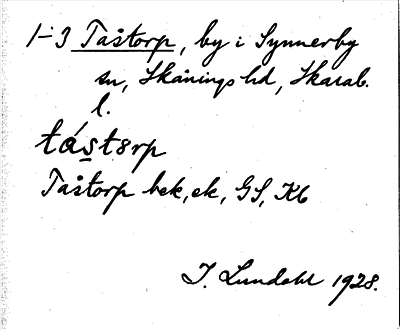 1-3 Tåstorp, by i Synnerby
sn, Skånings hd, Skarab.
l.
tá̊st8rp
Tåstorp bek, ek, GS, Kb
I. Lundahl 1928.